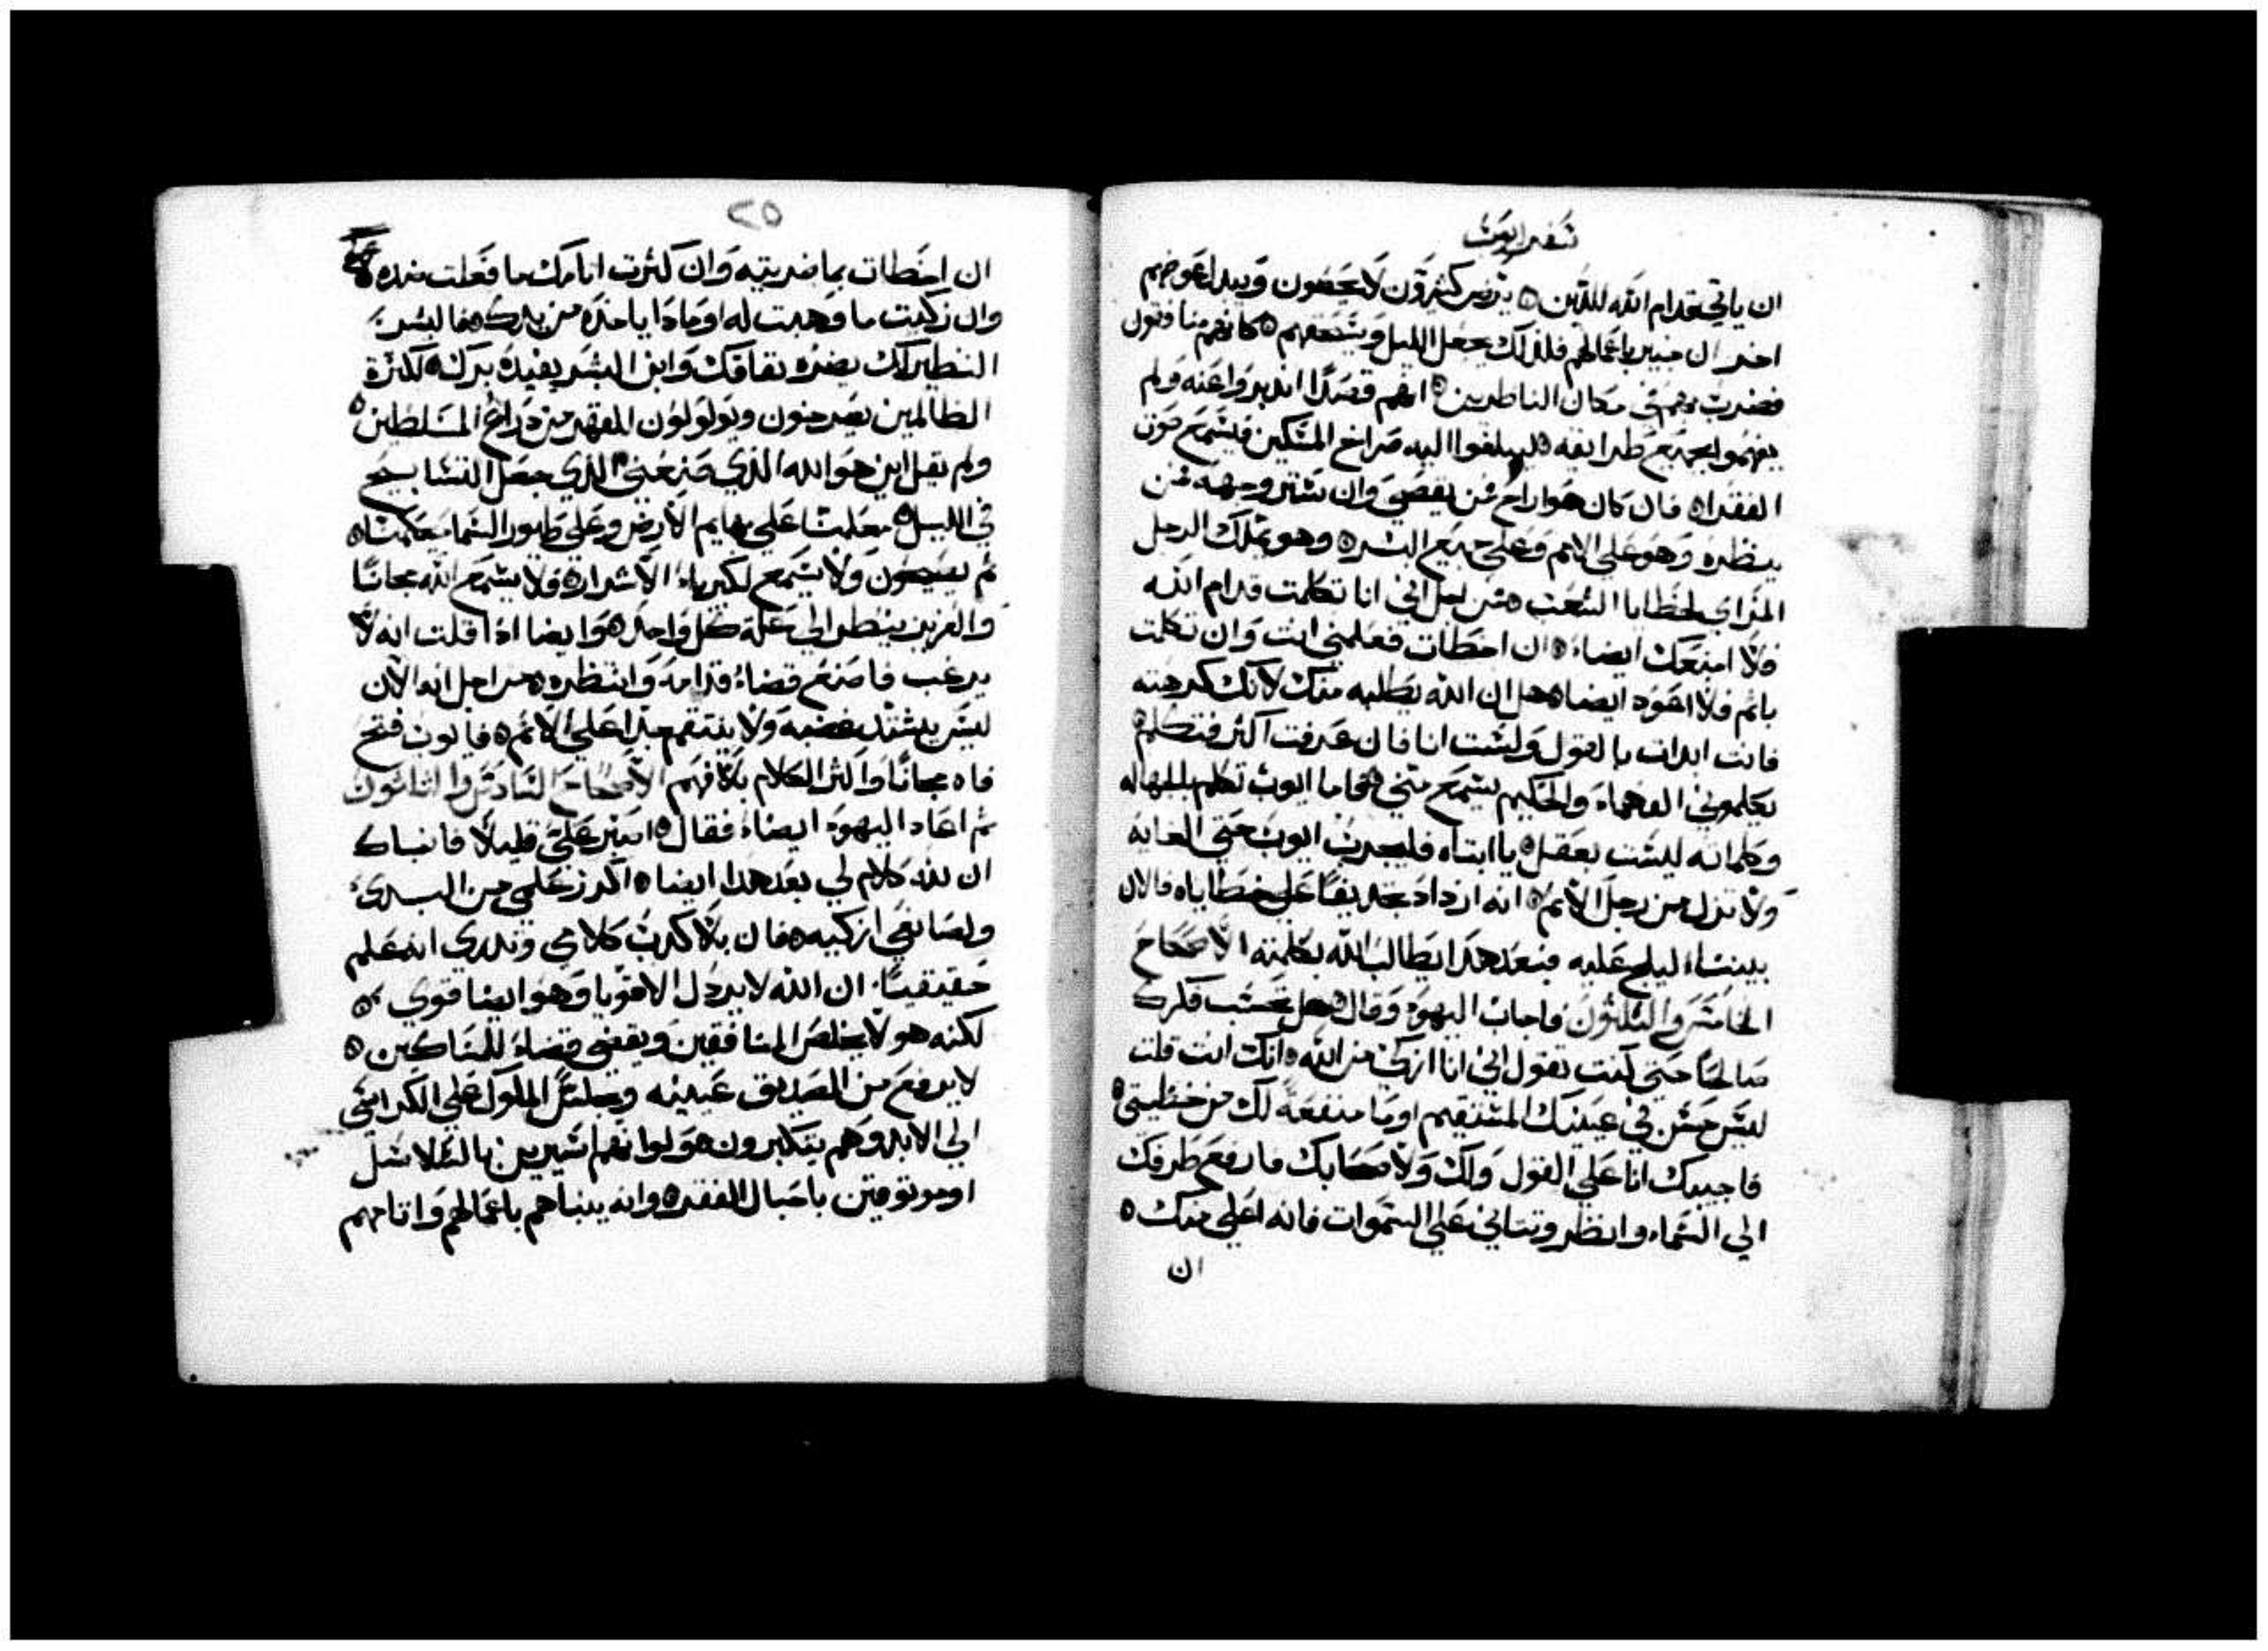 سفر ايوب
ان ياتي قدام الله للدين ٥ يرض كثيرون لا يحصون ويبدل عوضهم
اخر ان مبين باعمالهم فلذلك يجعل الليل ويسحقهم ٥ كانهم منافقون
فضربهم في مكان الناظرين ٥ انهم قصدًا اندبروا عنه ولم
يفهموا جميع طرايقه ٥ ليبلغوا اليه صراخ المسكين فيسمع صوت
الفقرا ٥ فان كان هو اراح من يقصي وان ستر وجهه من
ينظره وهو على الامم وعلى جميع البشر ٥ وهو يملك الرجل
المراي لخطايا الشعب ٥ من اجل اني انا تكلمت قدام الله
فلا امنعك ايضاء ٥ ان اخطات فعلمني انت وان تكلمت
باثم فلا اعود ايضا ٥ هل ان الله يطلبه منك لانك كرهته
فانت ابدات بالقول ولست انا فان عرفت اكثر فتكلم ٥
يعلموني الفهماء والحكيم يسمع مني ٥ فاما ايوب تكلم بالجهاله
وكلماته ليست بعقل ٥ يا ابتاه فليجرب ايوب حتى الغايه
ولا تزل من رجل الاثم ٥ انه ازداد تجديفًا على خطاياه فالان
بيننا ليلج عليه فبعد هذا يطالب الله بكلمته الاصحاح
الخامس والثلثون فاجاب اليهو وقال ٥ هل تحسب فكرك
صالحًا حتى كنت تقول اني انا ازكى من الله ٥ انك انت قلت
ليس حسن في عينيك المستقيم او ما منفعة لك من خطيتي ٥
فاجيبك انا على القول ولك ولاصحابك فارفع طرفك
الى السماء وانظر وتتاني على السموات فانه اعلى منك ٥
ان
٢٥
ان اخطات بما ضريته وان كثرت اثامك ما فعلت ضده
وان زكيت ما وهبت له او ماذا ياخذه من يدك ٥ فالبشر
النظيرك يضره نفاقك وابن البشر يفيده برك ٥ لكثرة
الظالمين يصرخون ويولولون لقهر من ذراع المسلطين ٥
ولم يقل اين هو الله الذي صنعني الذي جعل التسابيح
في الليل ٥ معلمنا على بهايم الارض وعلى طيور السما يحكمنا ٥
ثم يصيحون ولا يسمع لكبرياء الاشرار ٥ فلا يسمع الله مجانًا
والعزيز ينظر الى علة كل واحد ٥ وايضا اذا قلت انه لا
يرغب فاصنع قضاء قدامه وانتظره ٥ من اجل انه الان
ليس يشتد غضبه ولا ينتقم جدا على الاثم ٥ فايوب فتح
فاه مجانًا واكثر الكلام بلا فهم الاصحاح السادس والثلثون
ثم اعاد اليهو ايضاء فقال ٥ اصبر علي قليلًا فانباك
ان لله كلام لي بعد هذا ايضا ٥ اكرز علمي من البدئ
ولصانعي ازكيه ٥ فان بلا كدب كلامي وتدري انه علم
حقيقيًا ان الله لا يردل الاقويا وهو ايضا قوي ٥
لكنه هو لا يخلص المنافقين ويقضي قضاء للمساكين ٥
لا يرفع من الصديق عينيه ويجلس الملوك على الكراسي
الى الابد وهم يتكبرون هولوا فهم اسيرين بالسلاسل
او موتوقين باحبال الفقر ٥ وانه ينباهم باعمالهم واثامهم